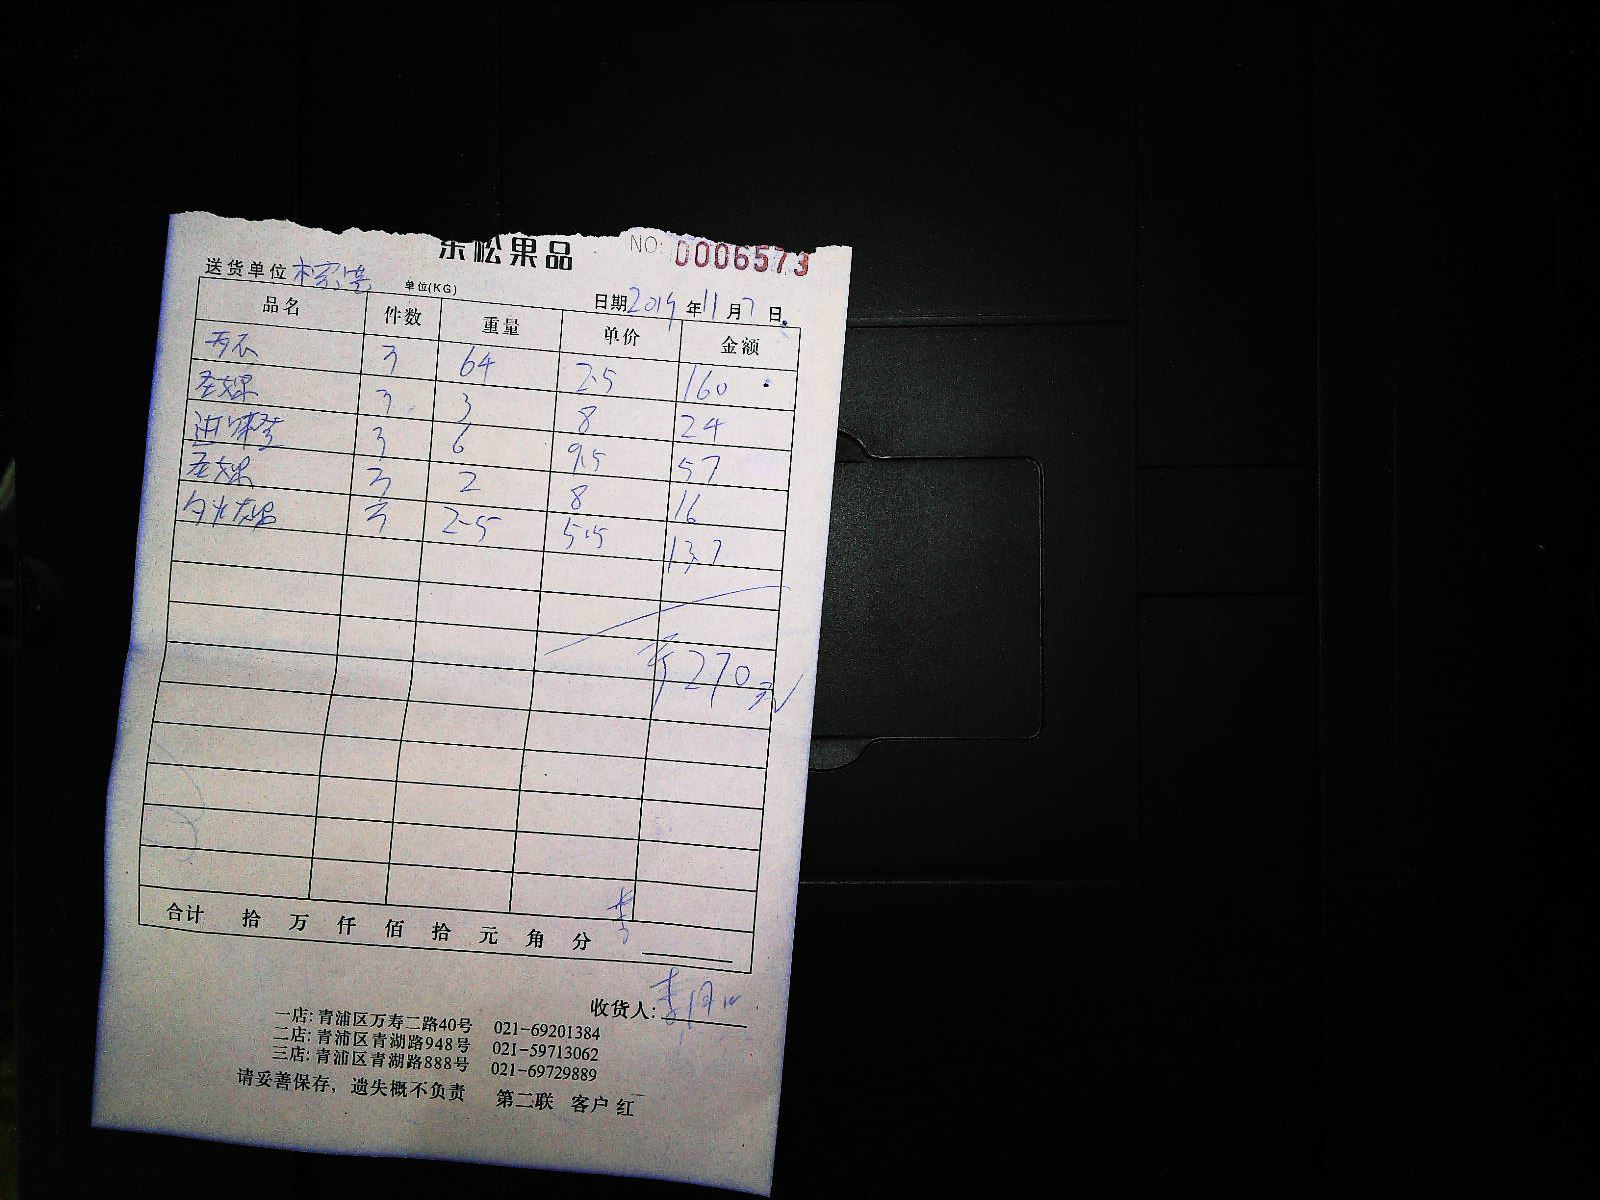 松果品 NO: 0006573
送货单位 单位(KG) 日期 2019 年 11 月 7 日
品名 件数 重量 单价 金额
64 2.5 160
圣女果 3 8 24
进口橙 6 9.5 57
圣女果 2 8 16
2.5 5.5 13.7
270元
合计 拾 万 仟 佰 拾 元 角 分
收货人:
一店: 青浦区万寿二路40号 021-69201384
二店: 青浦区青湖路948号 021-59713062
三店: 青浦区青湖路888号 021-69729889
请妥善保存，遗失概不负责 第二联 客户 红